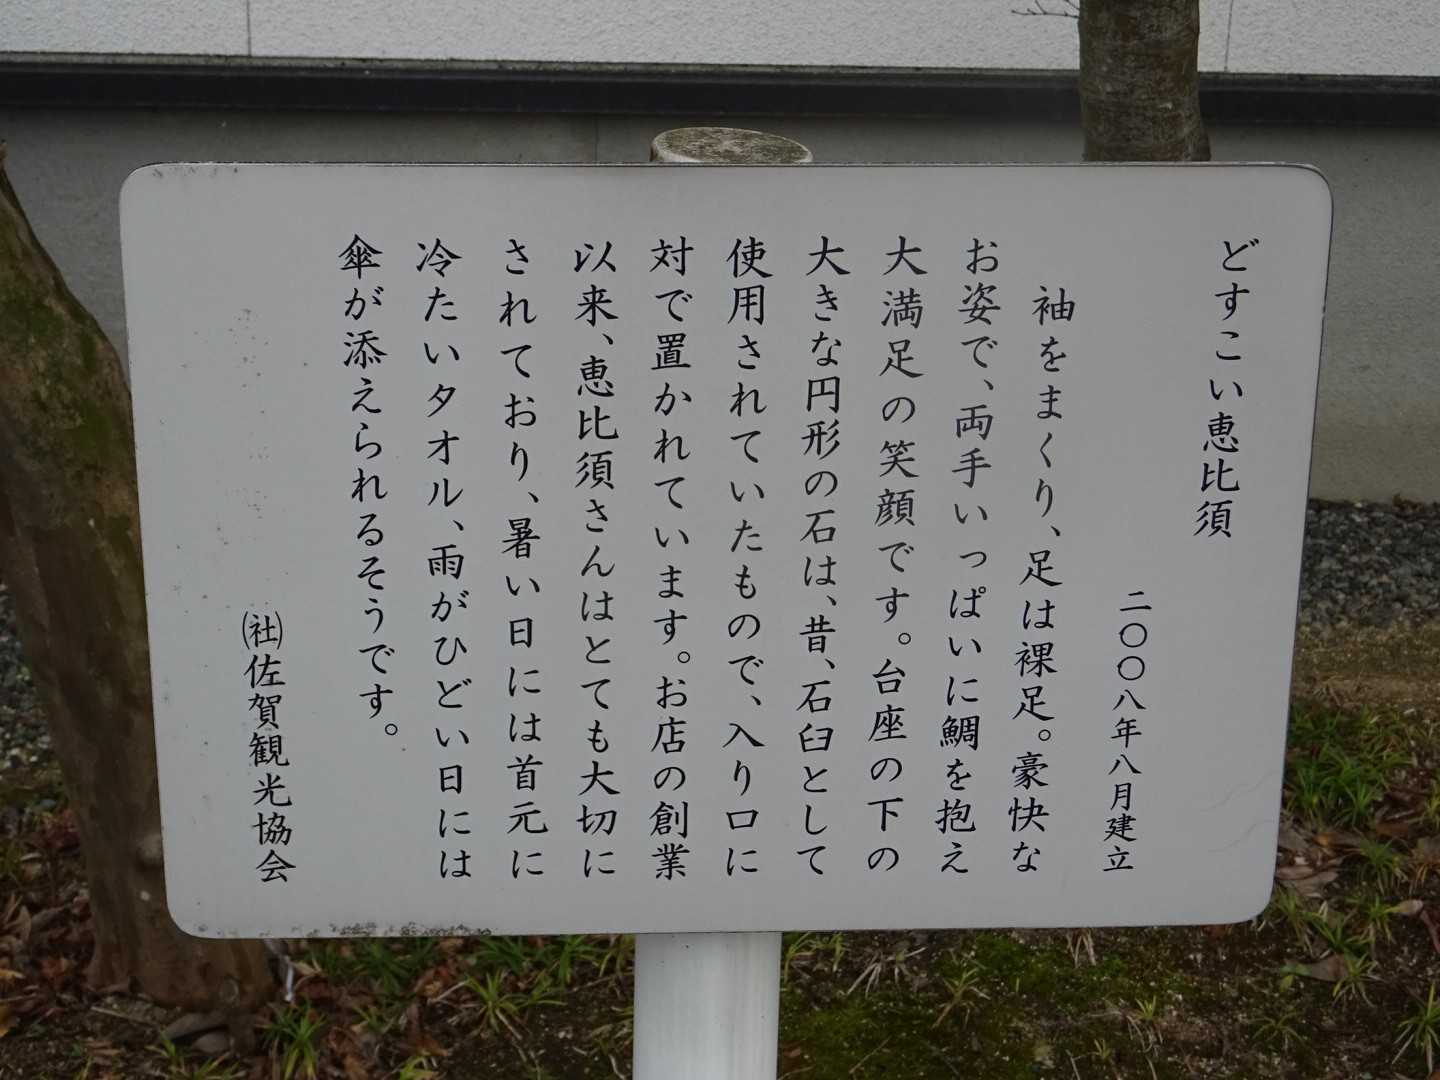 どすこい恵比須
二〇〇八年八月建立
袖をまくり、足は裸足。豪快な
お姿で、両手いっぱいに鯛を抱え
大満足の笑顔です。台座の下の
大きな円形の石は、昔、石臼として
使用されていたもので、入り口に
対で置かれています。お店の創業
以来、恵比須さんはとても大切に
されており、暑い日には首元に
冷たいタオル、雨がひどい日には
傘が添えられるそうです。
㈳佐賀観光協会